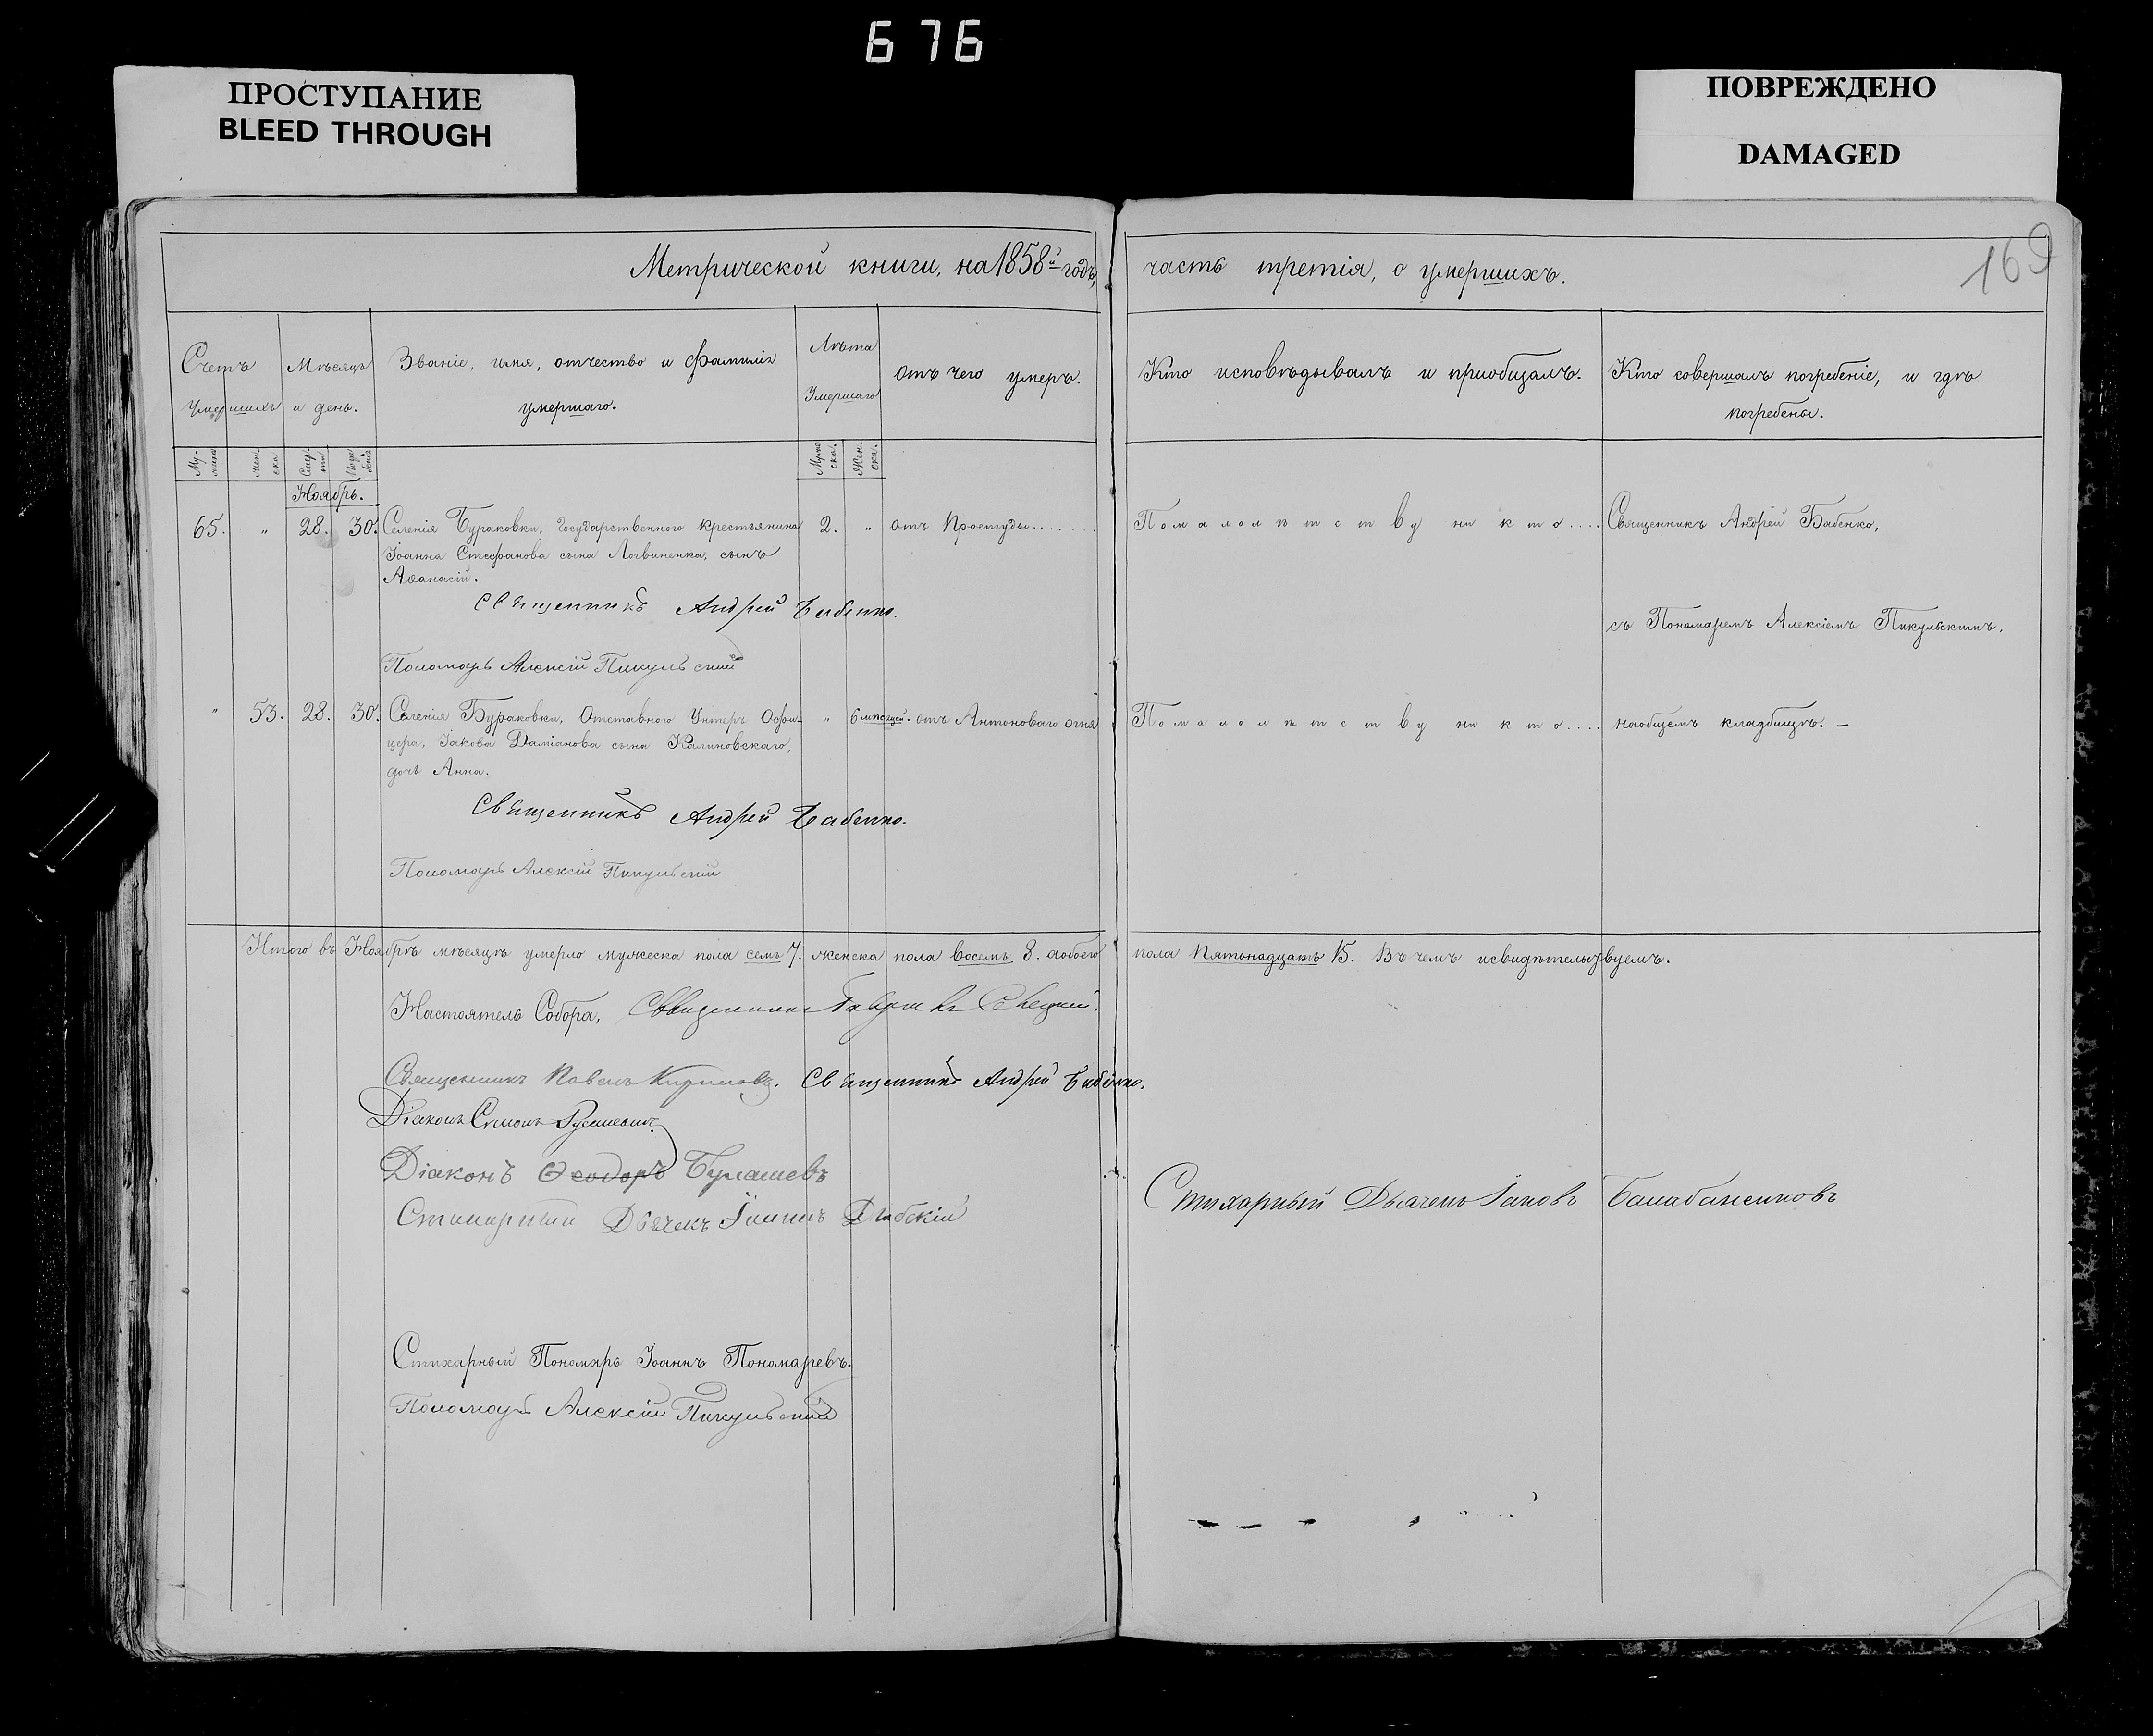 676
ПРОСТУПАНИЕ
BLEED THROUGH
ПОВРЕЖДЕНО
DAMAGED
169
Метрической книги, на 1858й годъ, часть третія, о умершихъ.
Счетъ умершихъ
Мѣсяцъ и день.
Званіе, имя, отчество и фамилія умершаго.
Лѣта Умершаго
отъ чего умеръ.
Кто исповѣдывалъ и приобщалъ.
Кто совершалъ погребеніе, и гдѣ погребены.
Мужска
Женска
Ноябрь.
65. " 28. 30. Селенія Бураковки, Государственного крестьянина 2. " отъ Простуды........ По малолѣтству ни кто.... Священникъ Андрей Бабенко,
Іоанна Стефанова сына Логвиненка, сынъ
Аѳанасій.
Священникъ Андрей Бабенко.
съ Пономаремъ Алексіемъ Пикульскимъ,
Пономарь Алексій Пикульскій
" 53. 28. 30. Селенія Бураковки, Отставного Унтеръ Офи- " 6 мѣсяцей. отъ Антоноваго огня По малолѣтству ни кто.... наобщемъ кладбищѣ. –
цера, Іакова Даміанова сына Калиновскаго,
дочь Анна.
Священникъ Андрей Бабенко.
Пономарь Алексій Пикульскій
Итого въ Ноябрѣ мѣсяцѣ умерло мужеска пола семъ 7. женска пола восемь 8. аобоего пола Пятьнадцать 15. Въ чемъ исвидѣтельствуемъ.
Настоятель Собора, Священникъ
Священникъ Павелъ Андрей Бабенко.
Діаконъ Симонъ
Діаконъ Ѳеодоръ
Стихарный Дьячекъ Іоаннъ
Стихарный Дьячекъ Іаковъ
Стихарный Пономарь Іоаннъ Пономаревъ.
Пономарь Алексій Пикульскій